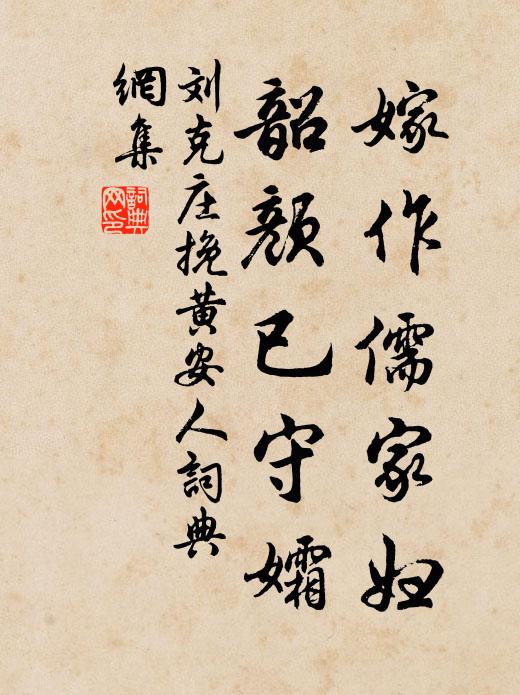 嫁作儒家妇
韶颜已守孀
刘克庄挽黄安人词典
網集
詞典
网印